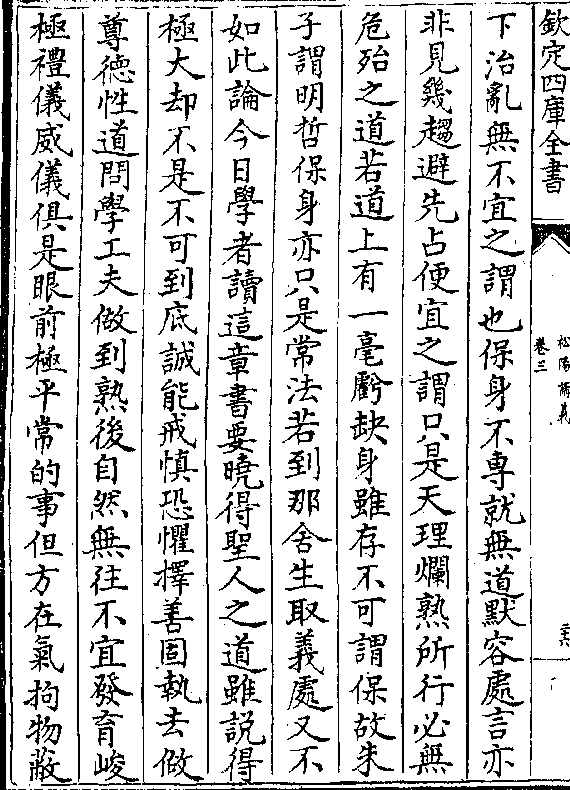 欽定四庫全書
松陽講義
卷三
二六
下治亂無不宜之謂也保身不專就無道默容處言亦
非見幾趨避先占便宜之謂只是天理爛熟所行必無
危殆之道若道上有一毫虧缺身雖存不可謂保故朱
子謂明哲保身亦只是常法若到那舍生取義處又不
如此論今日學者讀這章書要曉得聖人之道雖説得
極大却不是不可到底誠能戒慎恐懼擇善固執去做
尊徳性道問學工夫做到熟後自然無往不宜發育峻
極禮儀威儀俱是眼前極平常的事但方在氣拘物蔽